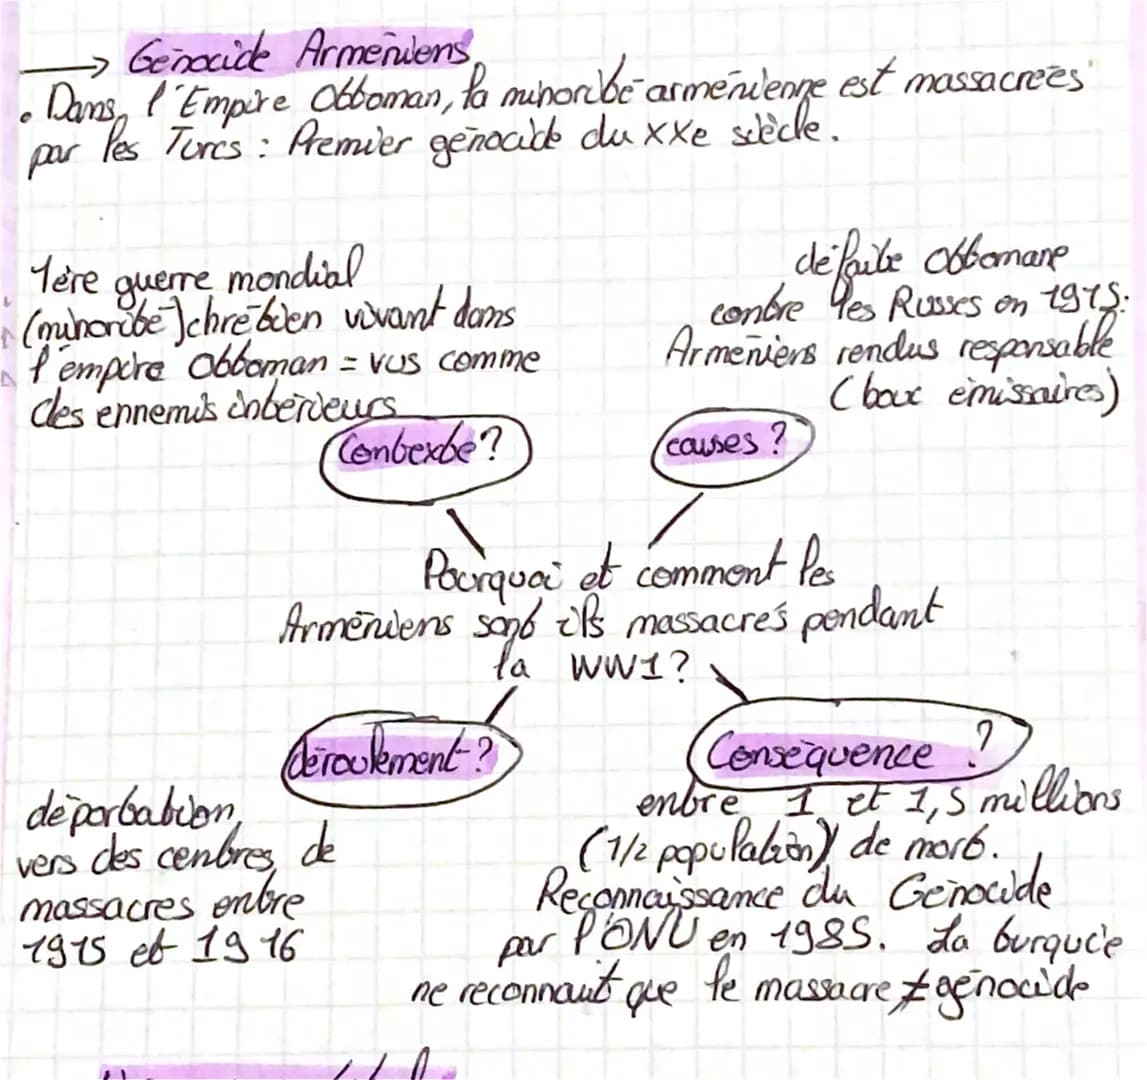 → Génocide Arméniens
• Dans l'Empire Ottoman, la minorité arménienne est massacrées
par les Turcs : Premier génocide du XXe siècle.
1ère guerre mondial
(minorité) chrétien vivant dans
l'empire Ottoman = vus comme
des ennemis intérieurs
défaite Ottomane
contre les Russes en 1915:
Arméniens rendus responsable
(boux émissaires)
Contexte ?
causes ?
Pourquoi et comment les
Arméniens sont ils massacrés pendant
la WW1 ?
déroulement ?
Conséquence ?
déportation,
vers des centres de
massacres entre
1915 et 1916
entre 1 et 1,5 millions
(1/2 population) de mort.
Reconnaissance du Génocide
par l'ONU en 1985. La turquie
ne reconnaut que le massacre ≠ génocide